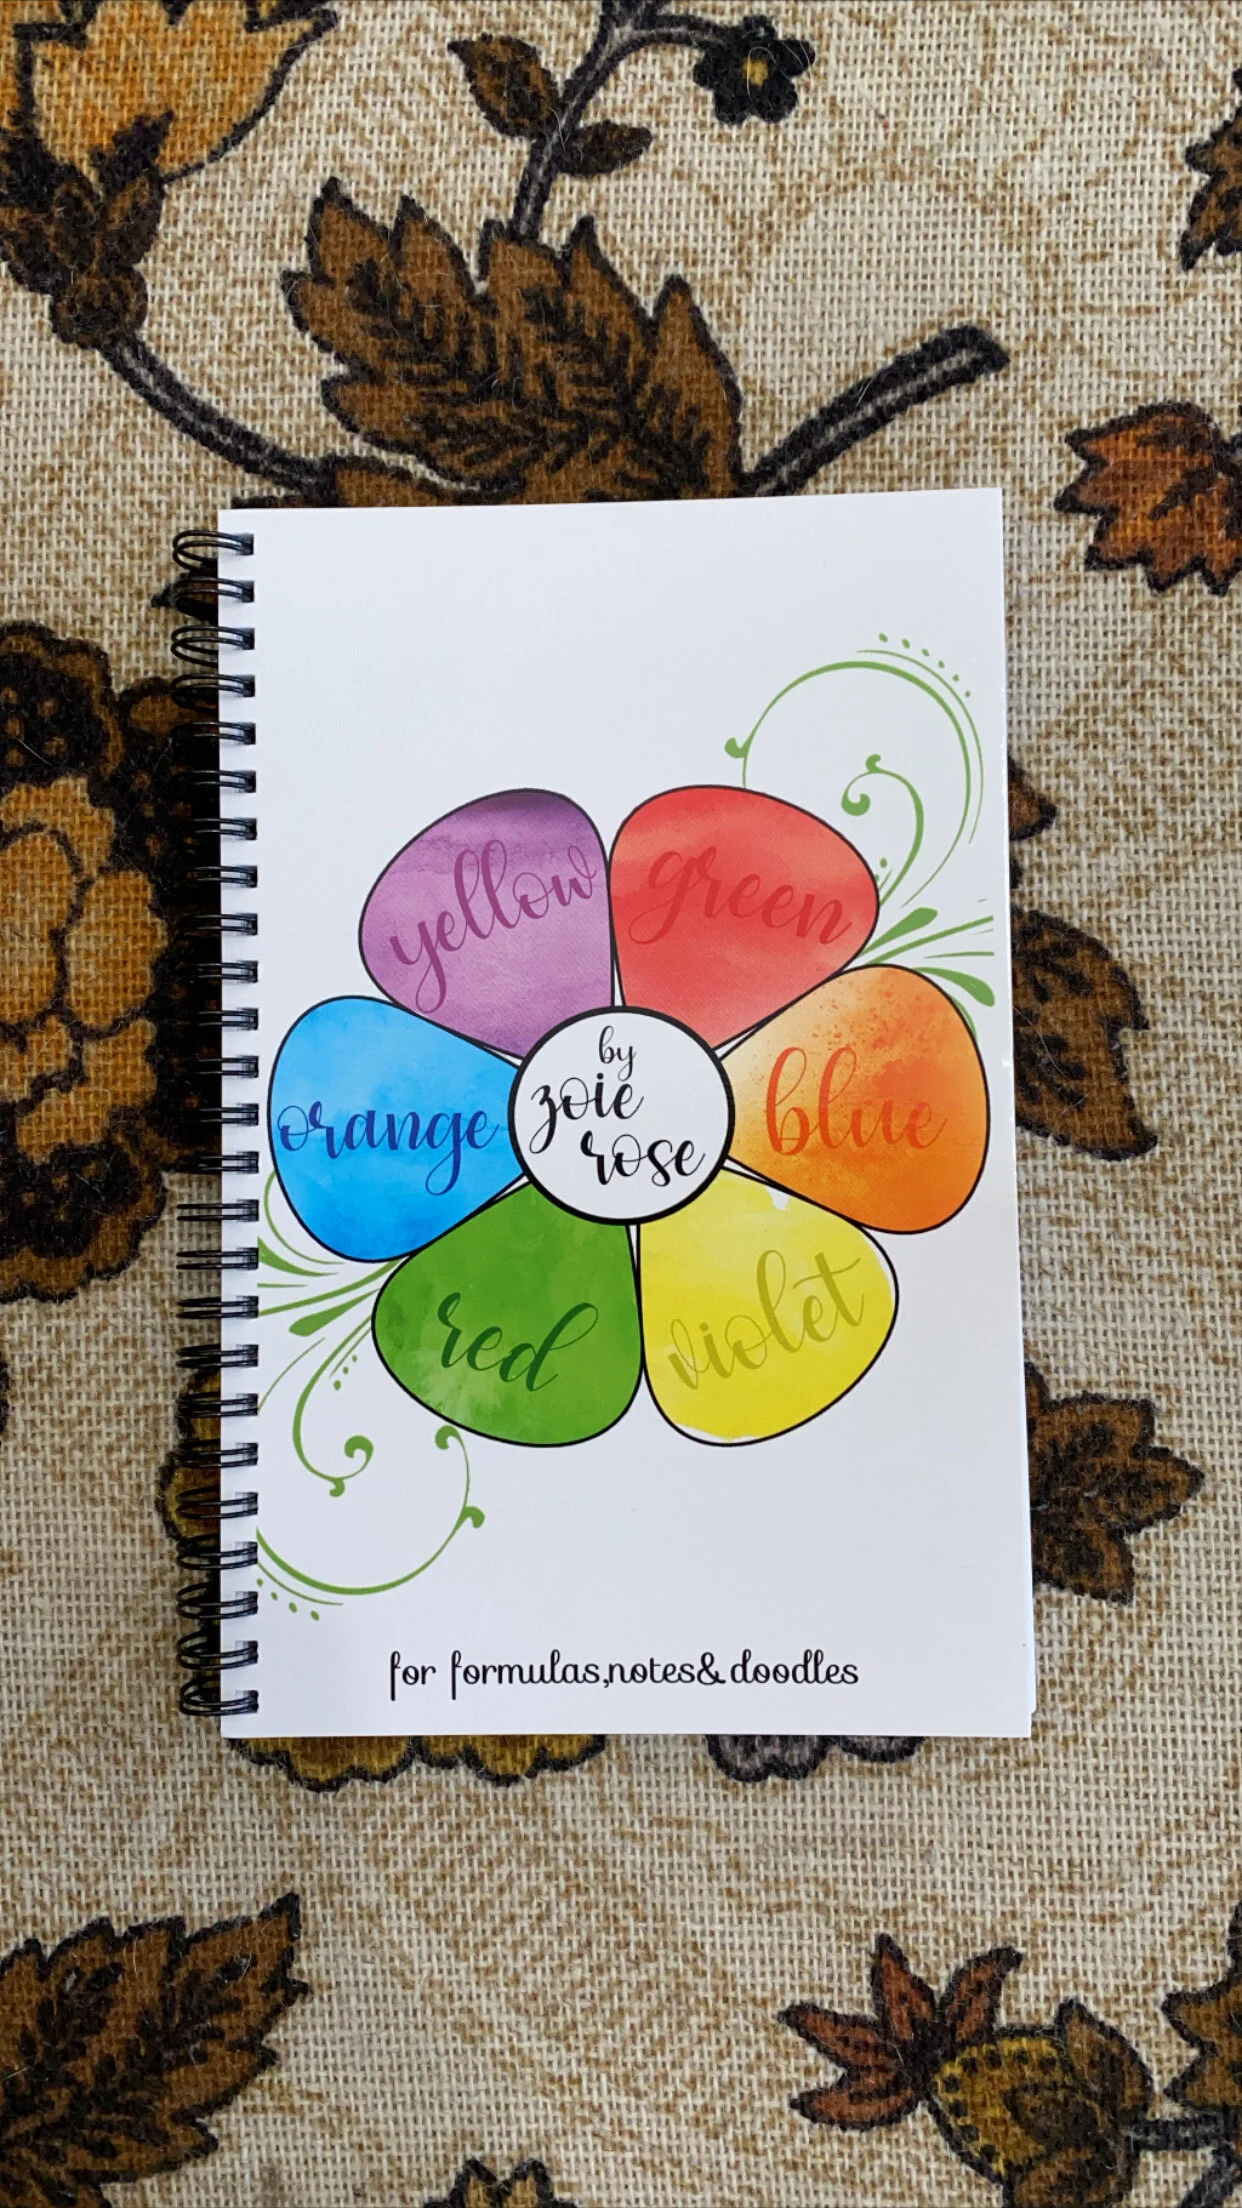 yellow
green
orange
by
zoie
rose
blue
red
violet
for formulas,notes&doodles